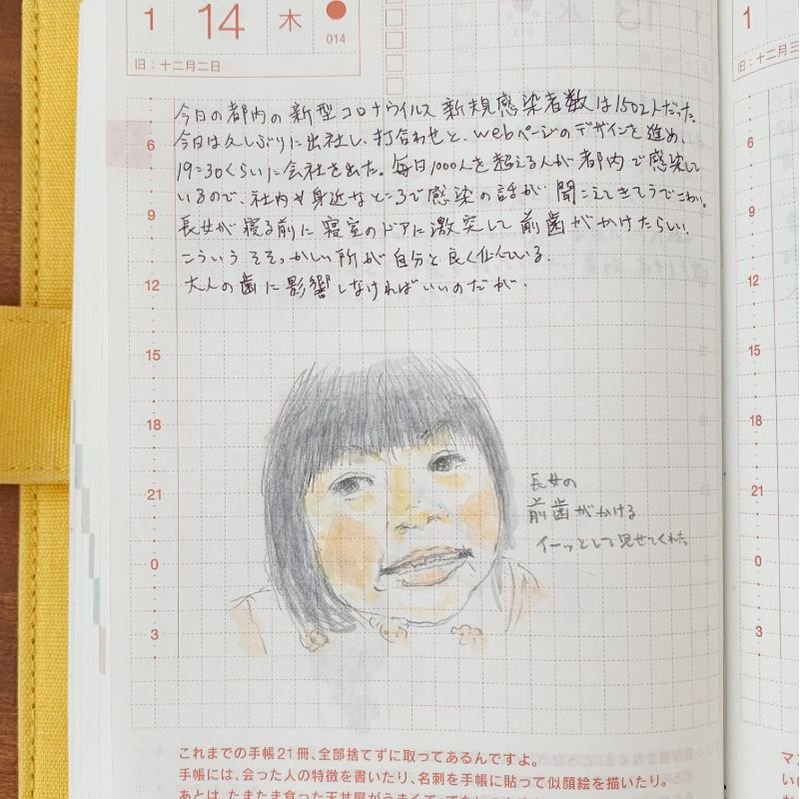 1 14 木
014
旧：十二月二日
今日の都内の新型コロナウイルス新規感染者数は1502人だった。
今日は久しぶりに出社し、打合わせと、webページのデザインを進め、
19:30くらいに会社を出た。毎日1000人を超える人が都内で感染して
いるので、社内や身近なところで感染の話が聞こえてきそうでこわい。
長女が寝る前に寝室のドアに激突して前歯がかけたらしい。
こういうそそっかしい所が自分と良く似ている。
大人の歯に影響しなければいいのだが。
6
9
12
15
18
21
0
3
長女の
前歯がかける
イーッとして見せてくれた
これまでの手帳21冊、全部捨てずに取ってあるんですよ。
手帳には、会った人の特徴を書いたり、名刺を手帳に貼って似顔絵を描いたり。
あとは、たまたま食った天丼屋がうまくて、
1
旧：十二月三
6
9
12
15
18
21
0
3
マン
い